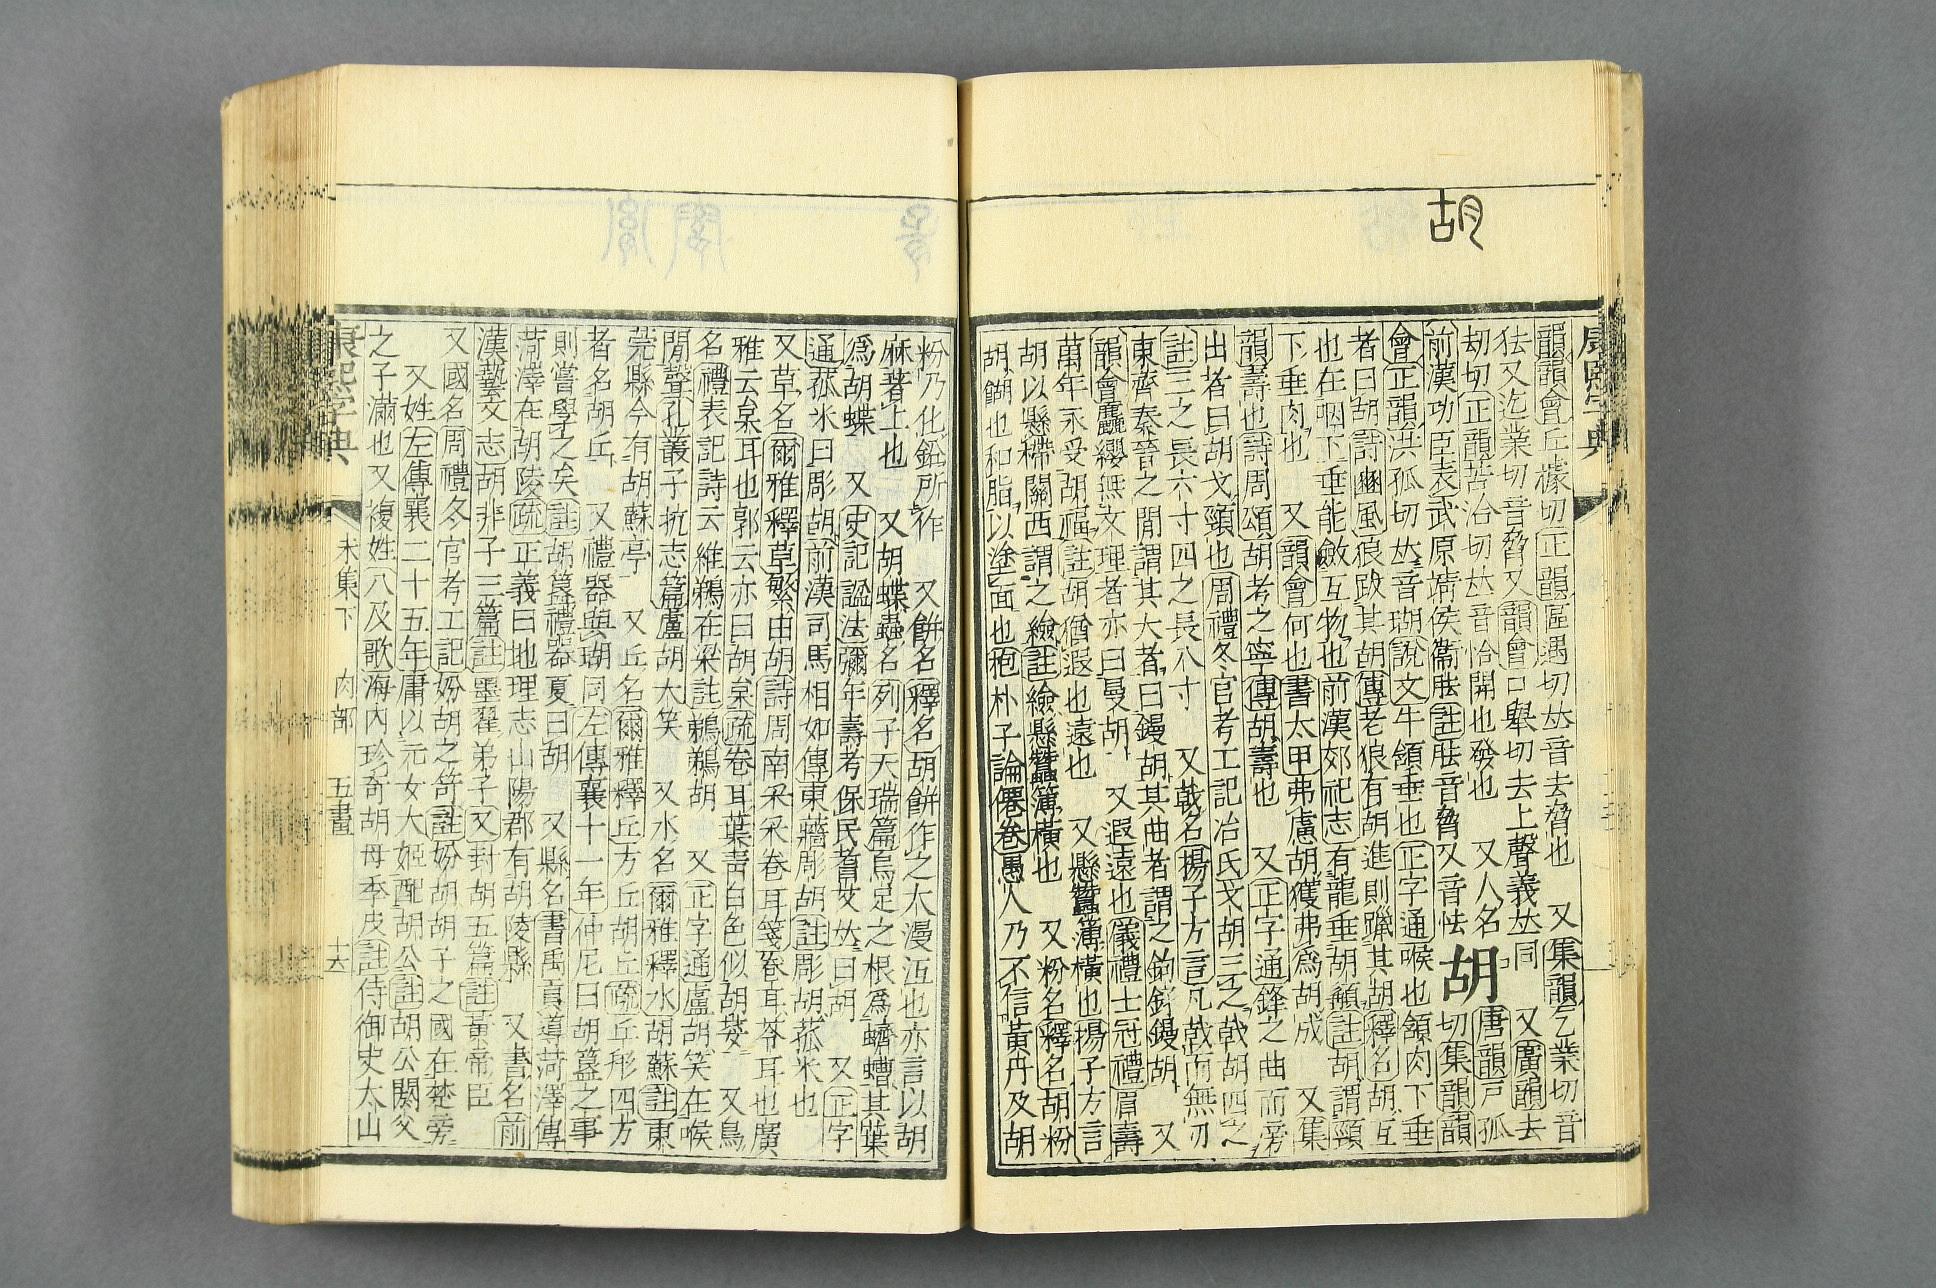 胡
康熙字典
韻韻會丘據切正韻區遇切𠀤音去脅也 又集韻乞業切音
㹤又迄業切音脅又韻會口舉切去上聲義𠀤同 又廣韻去
刧切正韻苦洽切𠀤音恰開也發也 又人名
前漢功臣表武原靖侯衞胠註胠音脅又音怯
胡
唐韻戸孤
切集韻韻
會正韻洪孤切𠀤音瑚說文牛頷垂也正字通喉也頷肉下垂
者曰胡詩豳風狼跋其胡傳老狼有胡進則躐其胡釋名胡互
也在咽下垂能斂互物也前漢郊祀志有龍垂胡䫇註胡謂頸
下垂肉也 又韻會何也書太甲弗慮胡獲弗爲胡成 又集
韻壽也詩周頌胡考之寧傳胡壽也 又正字通鋒之曲而旁
出者曰胡戈頸也周禮冬官考工記冶氏戈胡三之戟胡四之
註三之長六寸四之長八寸 又戟名揚子方言凡戟而無刃
東齊秦晉之閒謂其大者曰鏝胡其曲者謂之鉤釨鏝胡 又
韻會麤纓無文理者亦曰曼胡 又遐遠也儀禮士冠禮眉壽
萬年永受胡福註胡猶遐也遠也 又懸蠶簿橫也揚子方言
胡以懸㯂關西謂之㯢註㯢懸蠶簿橫也 又粉名釋名胡粉
胡餬也和脂以塗面也抱朴子論僊卷愚人乃不信黃丹及胡
粉乃化鉛所作 又餅名釋名胡餅作之大漫沍也亦言以胡
麻著上也 又胡蝶蟲名列子天瑞篇烏足之根爲蠐螬其葉
爲胡蝶 又史記諡法彌年壽考保民耆艾𠀤曰胡 又正字
通菰米曰彫胡前漢司馬相如傳東蘠彫胡註彫胡菰米也
又草名爾雅釋草蘩由胡詩周南采采卷耳箋卷耳苓耳也廣
雅云枲耳也郭云亦曰胡枲疏卷耳葉靑白色似胡荽 又鳥
名禮表記詩云維鵜在梁註鵜鵜胡 又正字通盧胡笑在喉
閒聲孔叢子抗志篇盧胡大笑 又水名爾雅釋水胡蘇註東
莞縣今有胡蘇亭 又丘名爾雅釋丘方丘胡丘疏丘形四方
者名胡丘 又禮器與瑚同左傳襄十一年仲尼曰胡簋之事
則嘗學之矣註胡簋禮器夏曰胡 又縣名書禹貢導菏澤傳
菏澤在胡陵疏正義曰地理志山陽郡有胡陵縣 又書名前
漢藝文志胡非子三篇註墨翟弟子又封胡五篇註黃帝臣
又國名周禮冬官考工記妢胡之笴註妢胡胡子之國在楚旁
又姓左傳襄二十五年庸以元女大姬配胡公註胡公閼父
之子滿也又複姓八及歌海內珍奇胡母季皮註侍御史太山
康熙字典
未集下 肉部 五畫
十六